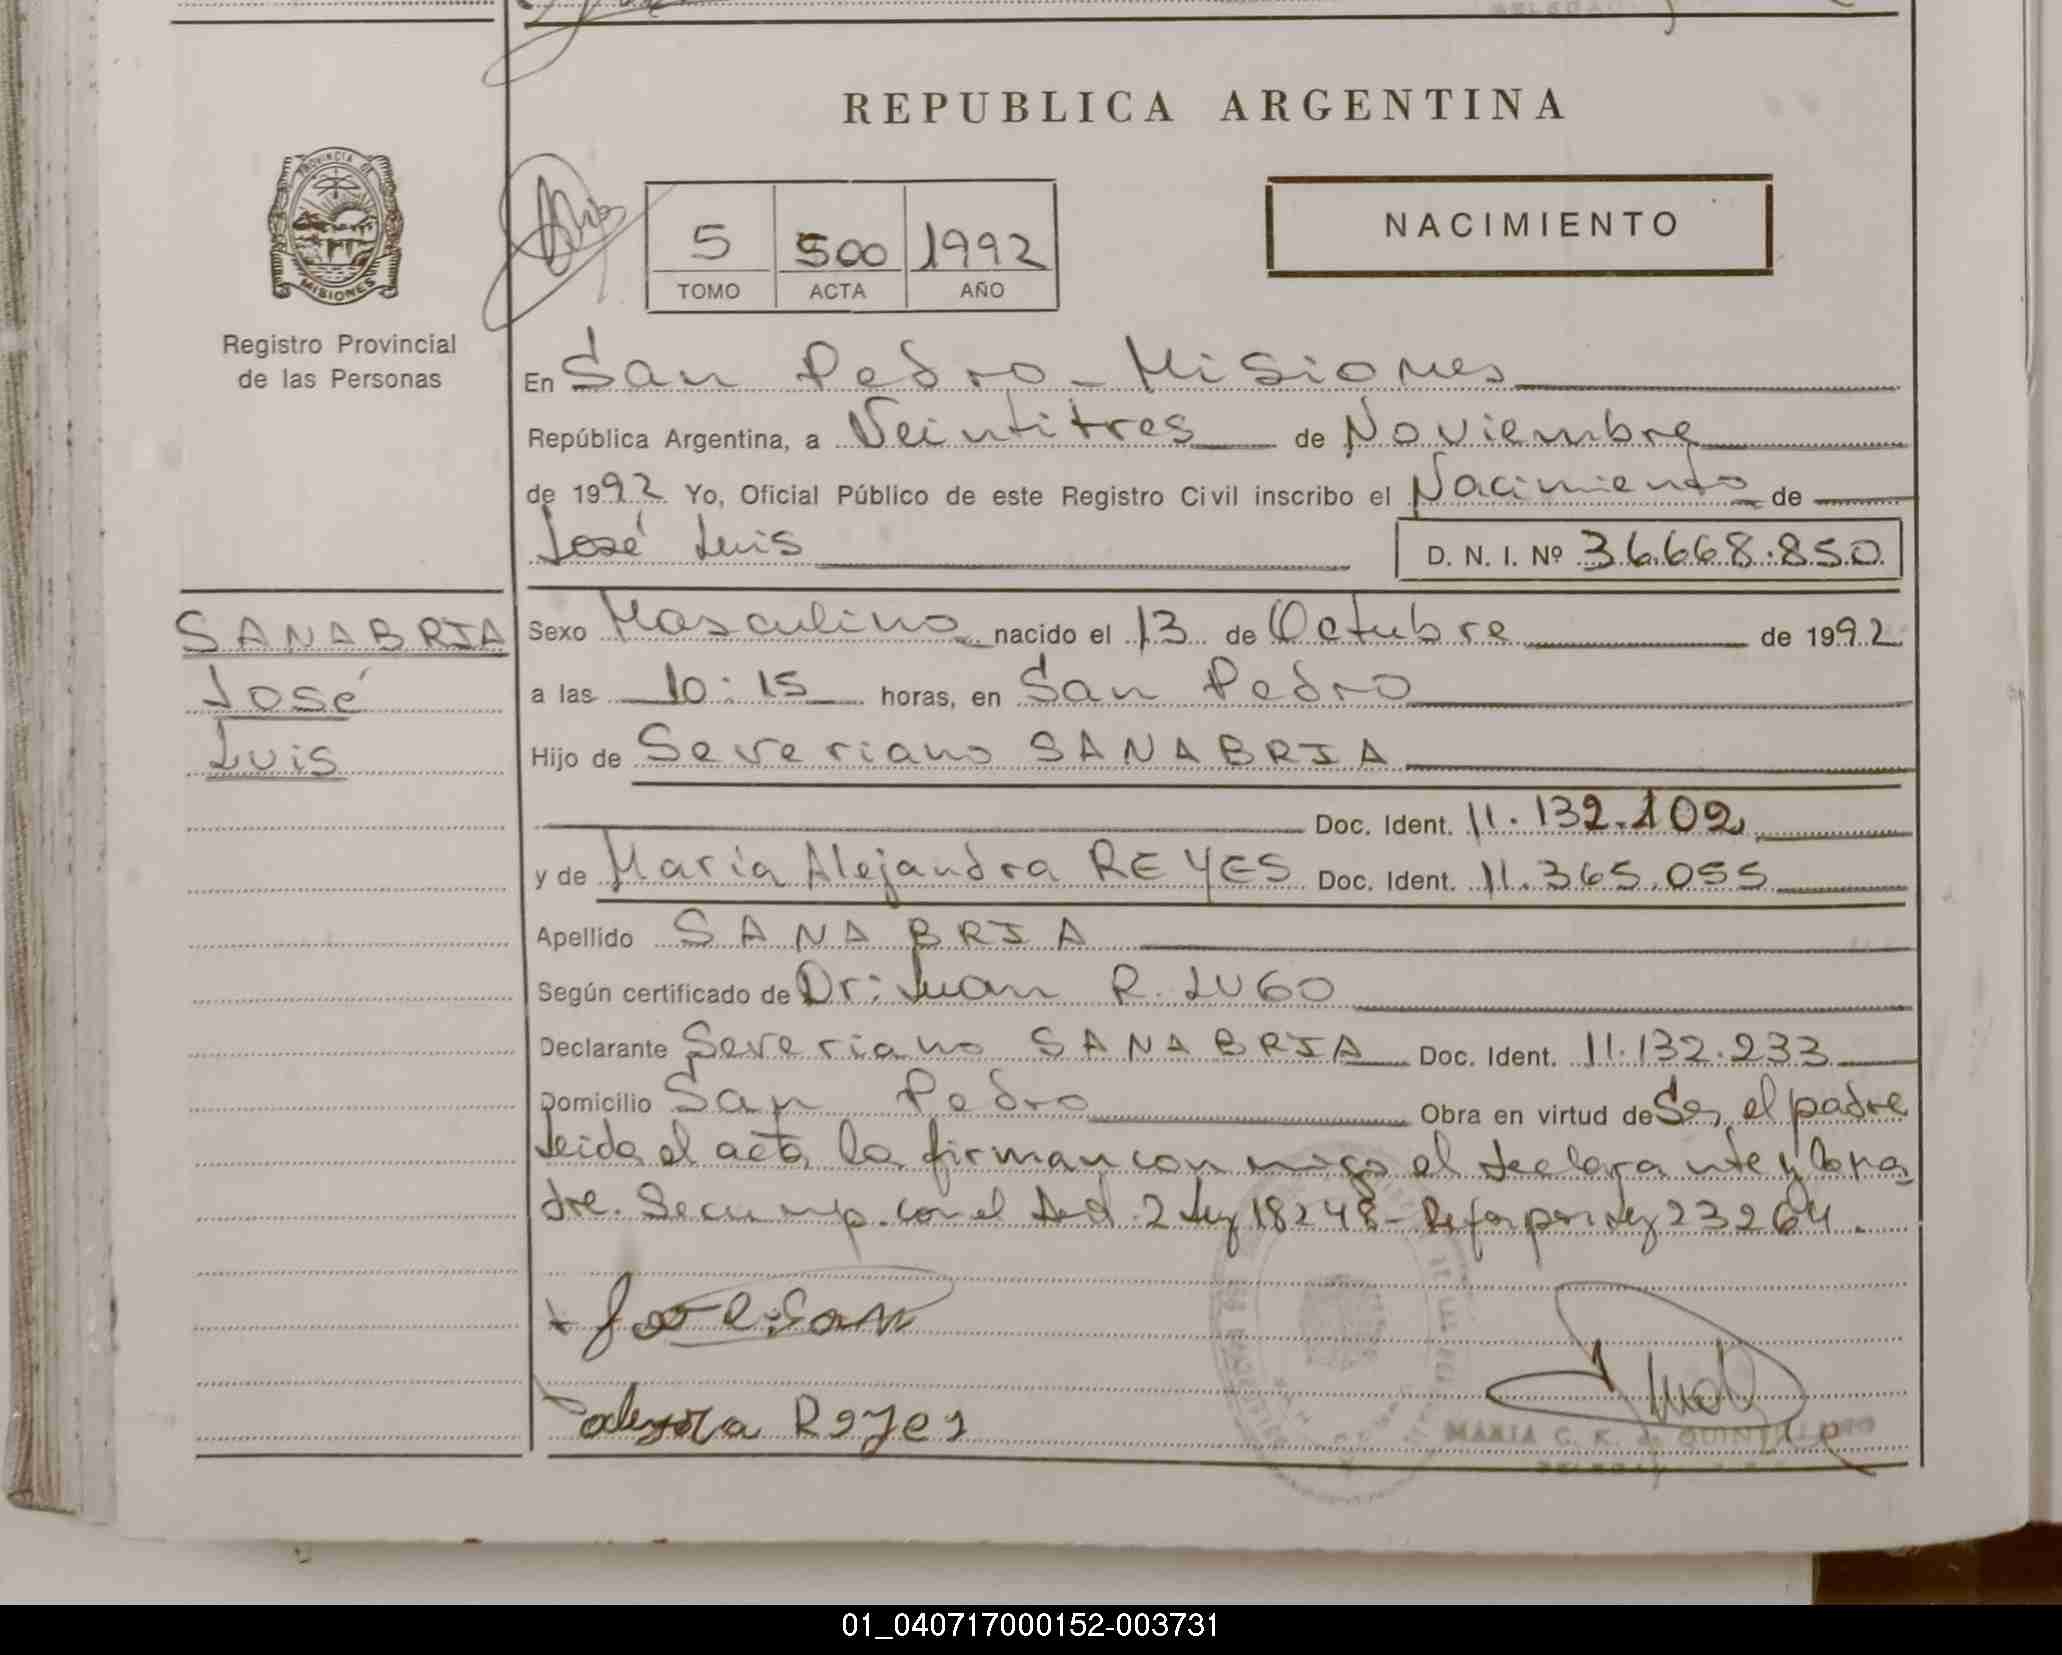 REPUBLICA ARGENTINA
PROVINCIA DE
MISIONES
Registro Provincial
de las Personas
5 500 1992
TOMO ACTA AÑO
NACIMIENTO
En San Pedro - Misiones
República Argentina, a Veintitres de Noviembre
de 1992 Yo, Oficial Público de este Registro Civil inscribo el Nacimiento de
José Luis D. N. I. Nº 36.668.850
SANABRIA
José
Luis
Sexo Masculino nacido el 13 de Octubre de 1992
a las 10:15 horas, en San Pedro
Hijo de Severiano SANABRIA
Doc. Ident. 11.132.102
y de María Alejandra REYES Doc. Ident. 11.365.055
Apellido SANABRIA
Según certificado de Dr: Juan R. LUGO
Declarante Severiano SANABRIA Doc. Ident. 11.132.233
Domicilio San Pedro Obra en virtud de Ser el padre
leida el acta la firman con migo el declarante y la ma
dre. Se cump. con el 2 Ley 18248 - Ref. por Ley 23264.
Reyes
MARIA C. K. de
01_040717000152-003731